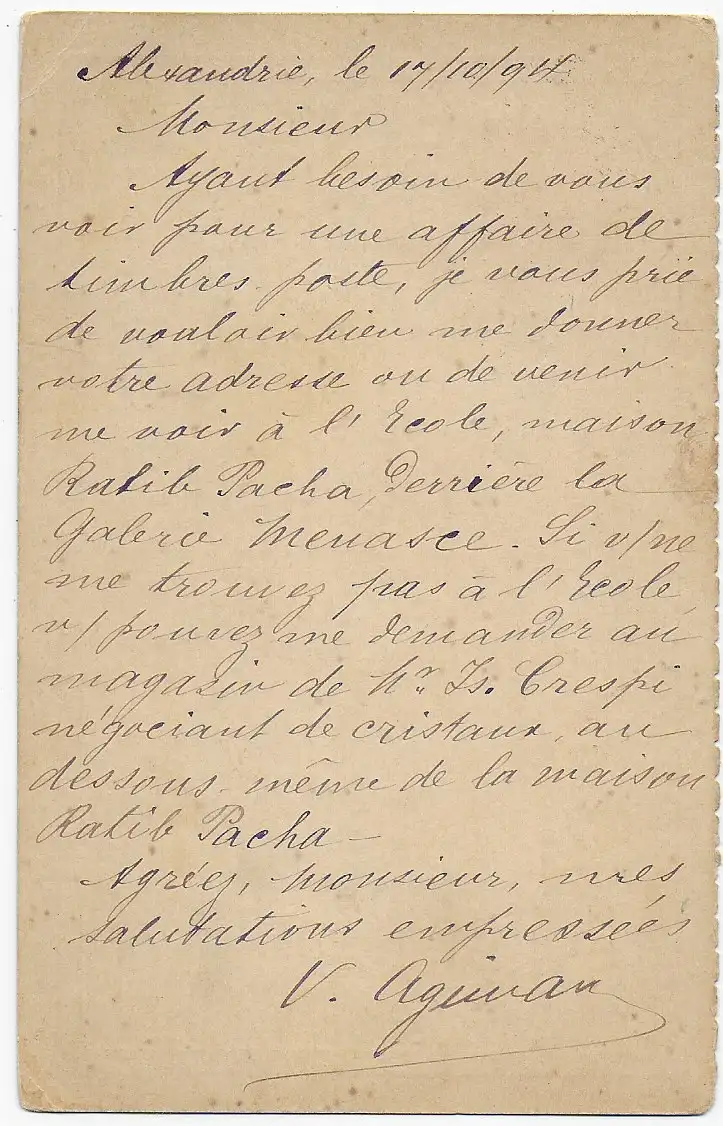 Alexandrie, le 17/10/94
Monsieur
Ayant besoin de vous
voir pour une affaire de
timbres-poste, je vous prie
de vouloir bien me donner
votre adresse ou de venir
me voir à l'Ecole, maison
Ratib Pacha, derrière la
Galerie Menasce. Si v/ ne
me trouvez pas à l'Ecole,
v/ pouvez me demander au
magazin de Mr. Is. Crespi
négociant de cristaux, au
dessous même de la maison
Ratib Pacha —
Agréez, Monsieur, mes
salutations empressées
V.